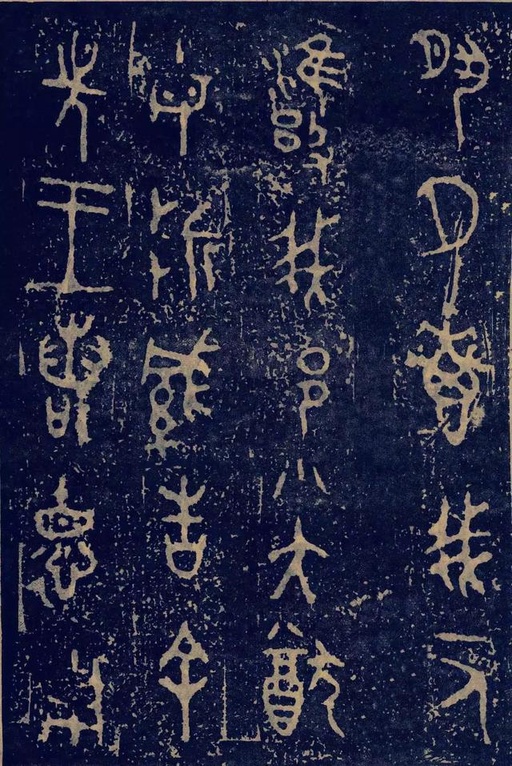 夙夕惠我一人
雝我邦小大猷
毋折緘告余
先王若德